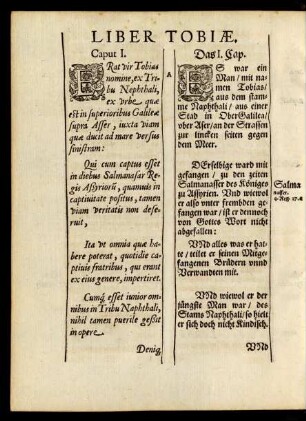 LIBER TOBIÆ.
Caput I.
ERat vir Tobias
nomine, ex Tri
bu Nephthali,
ex vrbe quæ
est in superioribus Galileæ
supra Asser, iuxta viam
quæ ducit ad mare versus
sinistram:
Qui cum captus esset
in diebus Salmanasar Re
gis Assyriorū, quamuis in
captiuitate positus, tamen
viam veritatis non dese
ruit,
Ita vt omnia quæ ha
bere poterat, quotidie ca
ptinis fratribus, qui erant
ex eius genere, impertiret.
Cumq́ esset iunior om
nibus in Tribu Naphthali,
nihil tamen puerile geßit
in opere.
Deniq
A
Das I. Cap.
ES war ein
Man/ mit na
men Tobias/
aus dem stam
me Naphthali/ aus einer
Stad in OberGalilea/
vber Aser/an der Strassen
zur lincken seiten gegen
dem Meer.
DErselbige ward mit
gefangen/ zu den zeiten
Salmanasser des Königes
zu Assyrien. Vnd wiewol
er also vnter frembden ge
fangen war/ ist er dennoch
von Gottes Wort nicht
abgefallen:
VNd alles was er hat
te/ teilet er seinen Mitge
fangenen Brüdern vnnd
Verwandten mit.
VNd wiewol er der
jüngste Man war/ des
Stams Naphthali/ so hielt
er sich doch nicht Kindisch.
VNd
Salma
nasser.